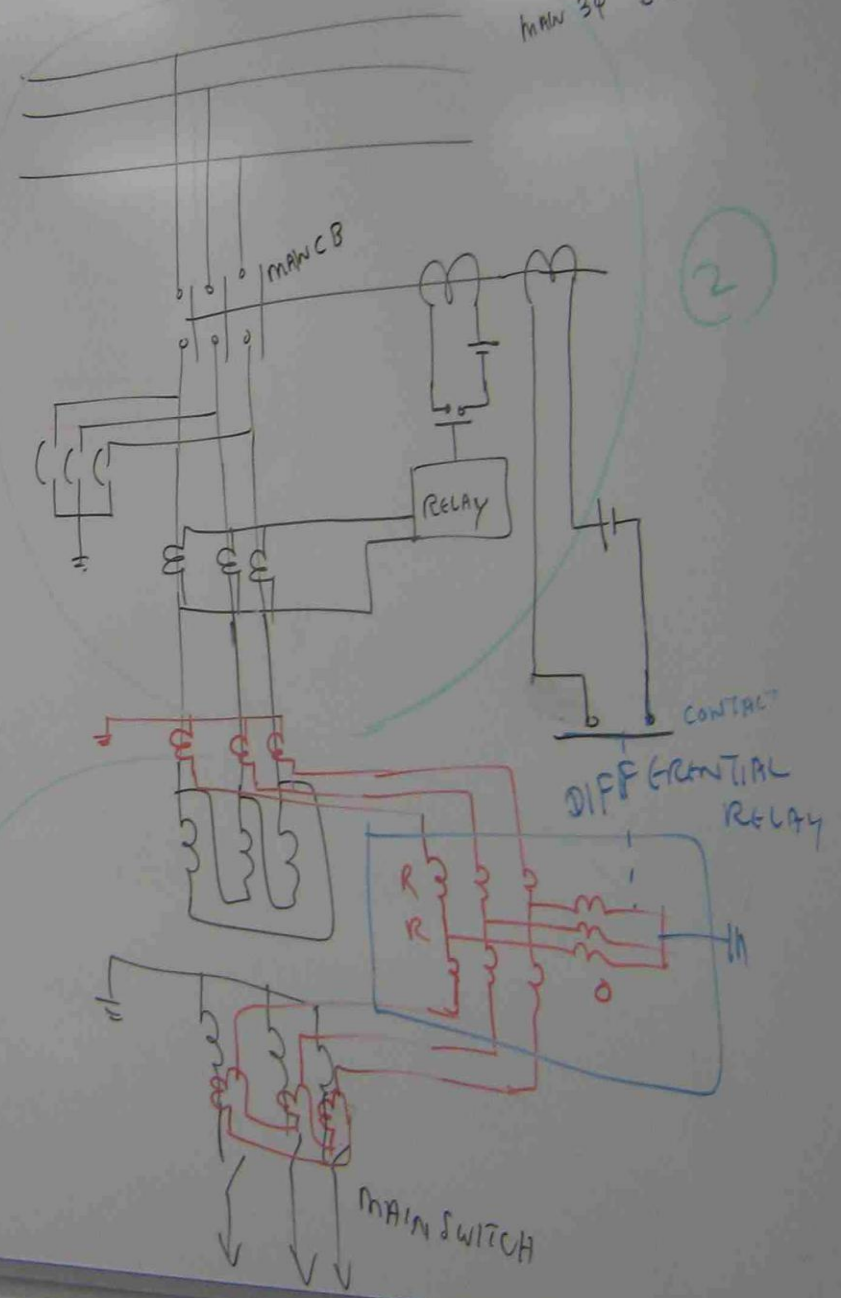 MAIN 3φ
MAIN CB
2
RELAY
CONTACT
DIFFERENTIAL
RELAY
R
R
O
MAIN SWITCH